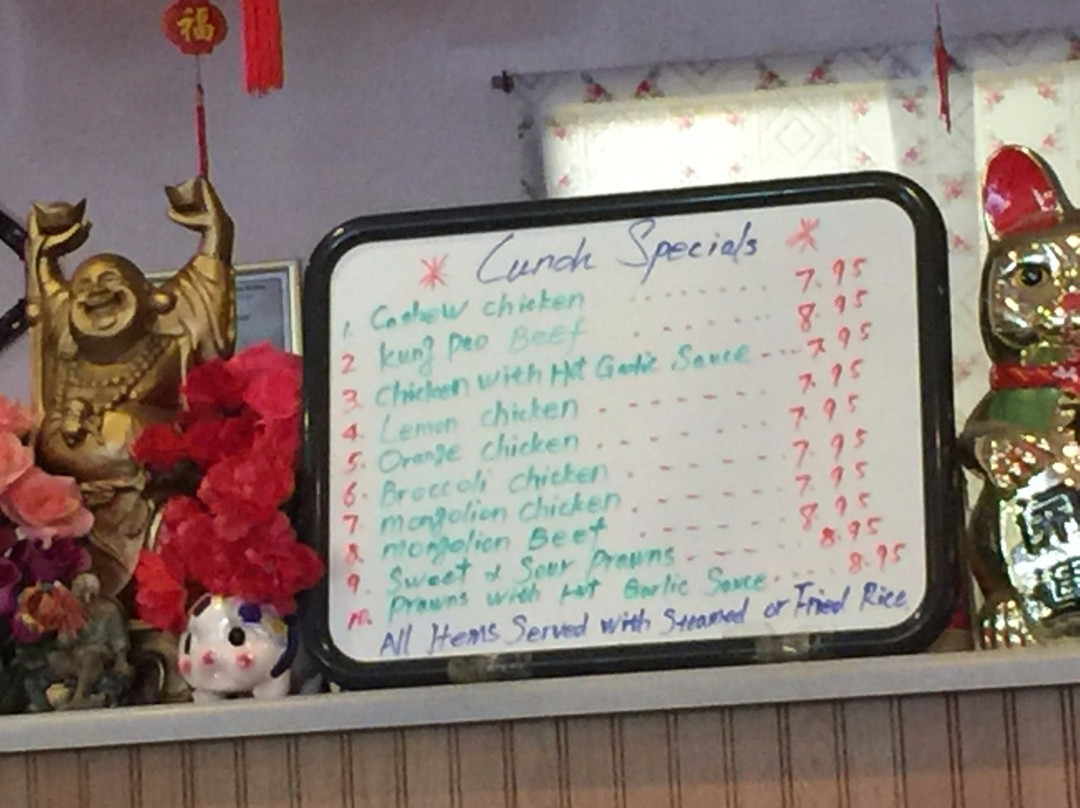 福
* Lunch Specials *
1. Cashew chicken ........ 7.95
2 Kung pao Beef ........ 8.95
3. Chicken with Hot Garlic Sauce ---- 7.95
4. Lemon chicken - - - - - - 7.95
5. Orange chicken - - - - - - 7.95
6. Broccoli chicken - - - - - - 7.95
7. mongolion chicken - - - - - - 7.95
8. mongolion Beef - - - - - - 8.95
9. Sweet & Sour Prawns - - - - - 8.95
10. prawns with Hot Garlic Sauce ---- 8.95
All Items Served with Steamed or Fried Rice